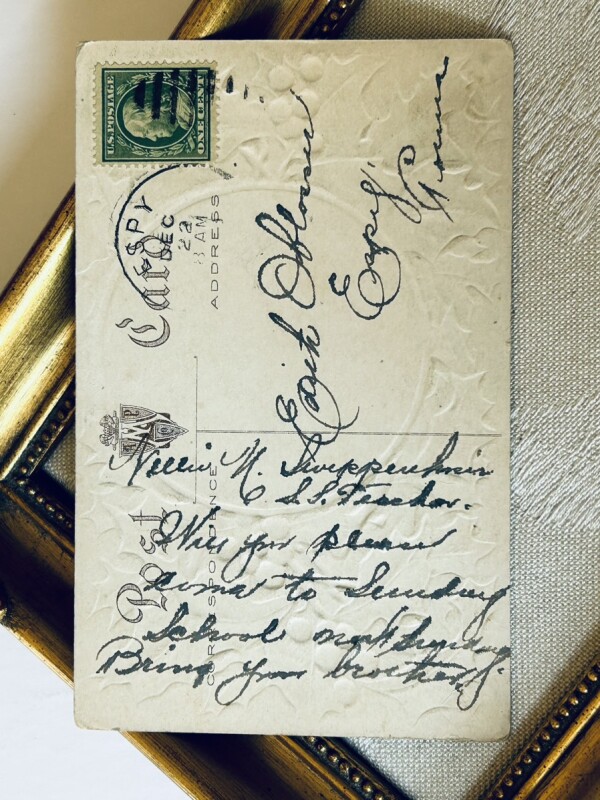 U.S.POSTAGE
ONE CENT
ESPY
DEC
22
8 AM
Post Card
ADDRESS
CORRESPONDENCE
Edith
Espy
Penna
Nellie M.
S.S. Teacher.
Will you please
come to Sunday
School next Sunday
Bring your brother